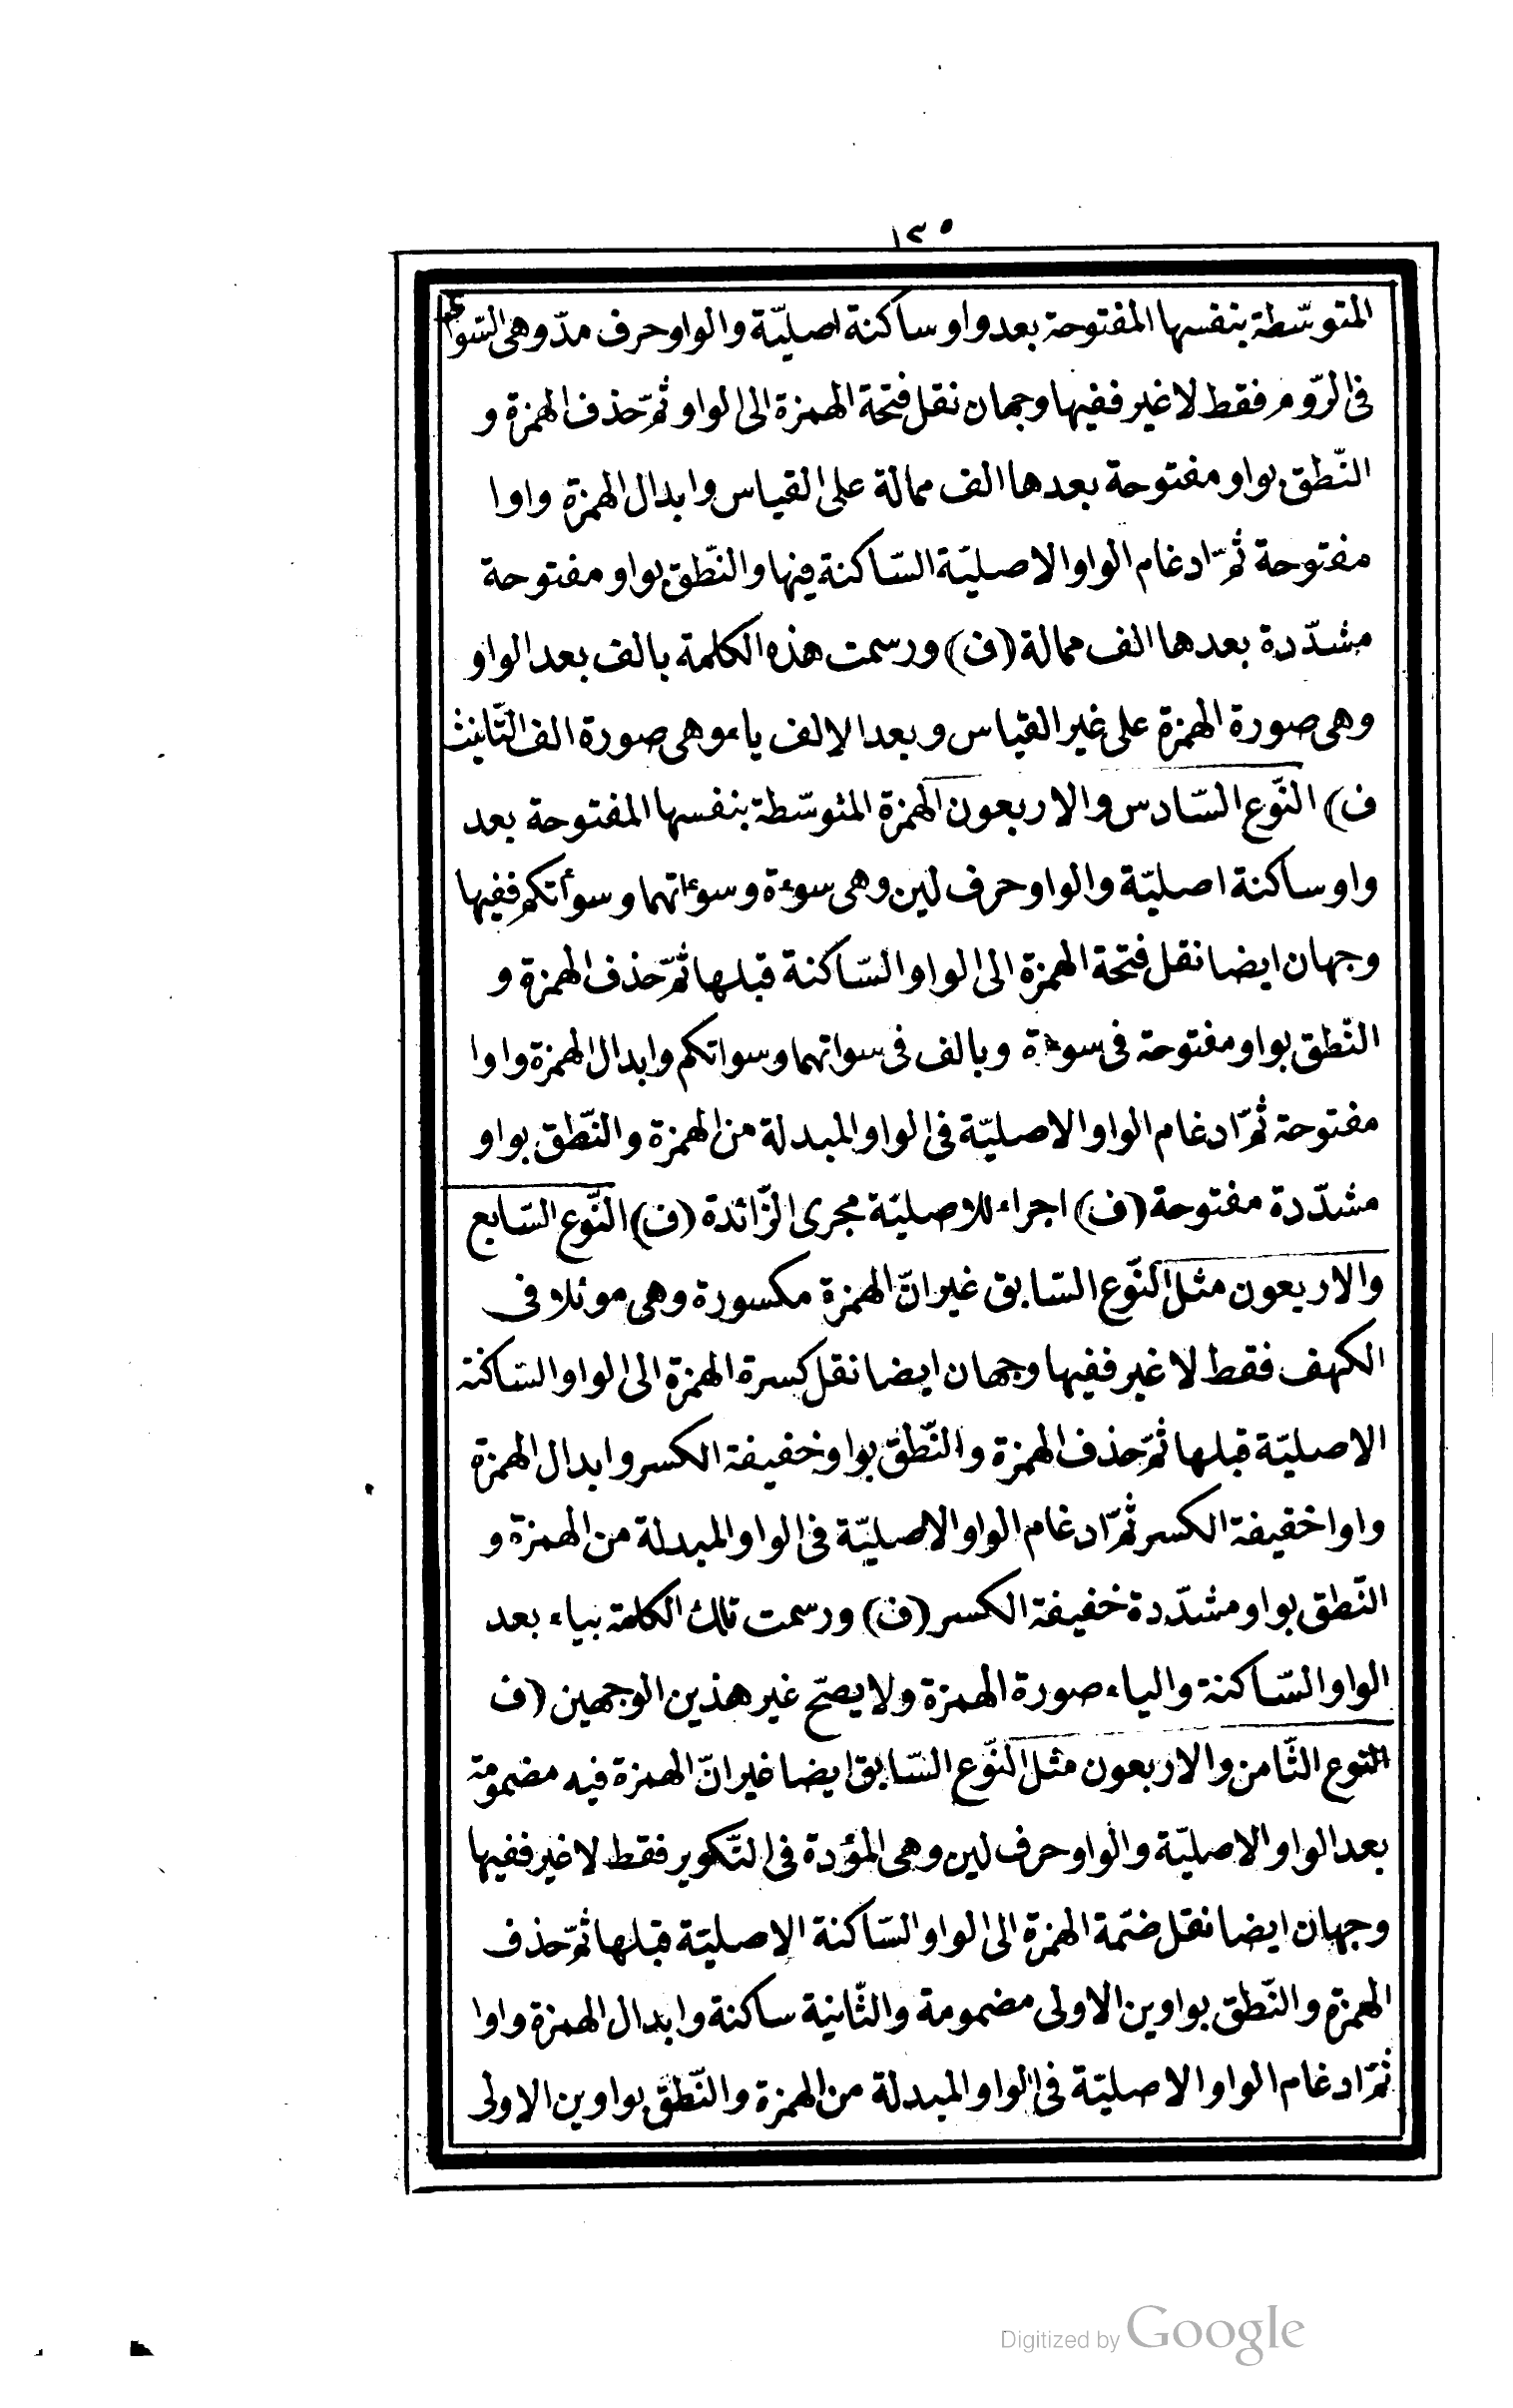 ١٢٥
المتوسّطة بنفسها المفتوحة بعد واو ساكنة اصليّة والواو حرف مدّ وهى السّوأى
فى الرّوم فقط لا غير ففيها وجهان نقل فتحة الهمزة الى الواو ثمّ حذف الهمزة و
النّطق بواو مفتوحة بعدها الف ممالة على القياس وابدال الهمزة واوا
مفتوحة ثمّ ادغام الواو الاصليّة السّاكنة فيها والنّطق بواو مفتوحة
مشدّدة بعدها الف ممالة (ف) ورسمت هذه الكلمة بالف بعد الواو
وهى صورة الهمزة على غير القياس وبعد الالف ياء وهى صورة الف التّانيث
ف) النّوع السّادس والاربعون الهمزة المتوسّطة بنفسها المفتوحة بعد
واو ساكنة اصليّة والواو حرف لين وهى سوءة وسوءاتهما وسوأتكم ففيها
وجهان ايضا نقل فتحة الهمزة الى الواو السّاكنة قبلها ثمّ حذف الهمزة و
النّطق بواو مفتوحة فى سوءة وبالف فى سواتهما وسواتكم وابدال الهمزة واوا
مفتوحة ثمّ ادغام الواو الاصليّة فى الواو المبدلة من الهمزة والنّطق بواو
مشدّدة مفتوحة (ف) اجراء للاصليّة مجرى الزّائدة (ف) النّوع السّابع
والاربعون مثل النّوع السّابق غير انّ الهمزة مكسورة وهى موئلا فى
الكهف فقط لا غير ففيها وجهان ايضا نقل كسرة الهمزة الى الواو السّاكنة
الاصليّة قبلها ثمّ حذف الهمزة والنّطق بواو خفيفة الكسر وابدال الهمزة
واوا خفيفة الكسر ثمّ ادغام الواو الاصليّة فى الواو المبدلة من الهمزة و
النّطق بواو مشدّدة خفيفة الكسر (ف) ورسمت تلك الكلمة بياء بعد
الواو السّاكنة والياء صورة الهمزة ولا يصحّ غير هذين الوجهين (ف
النوع الثّامن والاربعون مثل النّوع السّابق ايضا غير انّ الهمزة فيه مضمومة
بعد الواو الاصليّة والواو حرف لين وهى المؤدة فى التّكوير فقط لا غير ففيها
وجهان ايضا نقل ضمّة الهمزة الى الواو السّاكنة الاصليّة قبلها ثمّ حذف
الهمزة والنّطق بواوين الاولى مضمومة والثّانية ساكنة وابدال الهمزة واوا
ثمّ ادغام الواو الاصليّة فى الواو المبدلة من الهمزة والنّطق بواوين الاولى
Digitized by Google